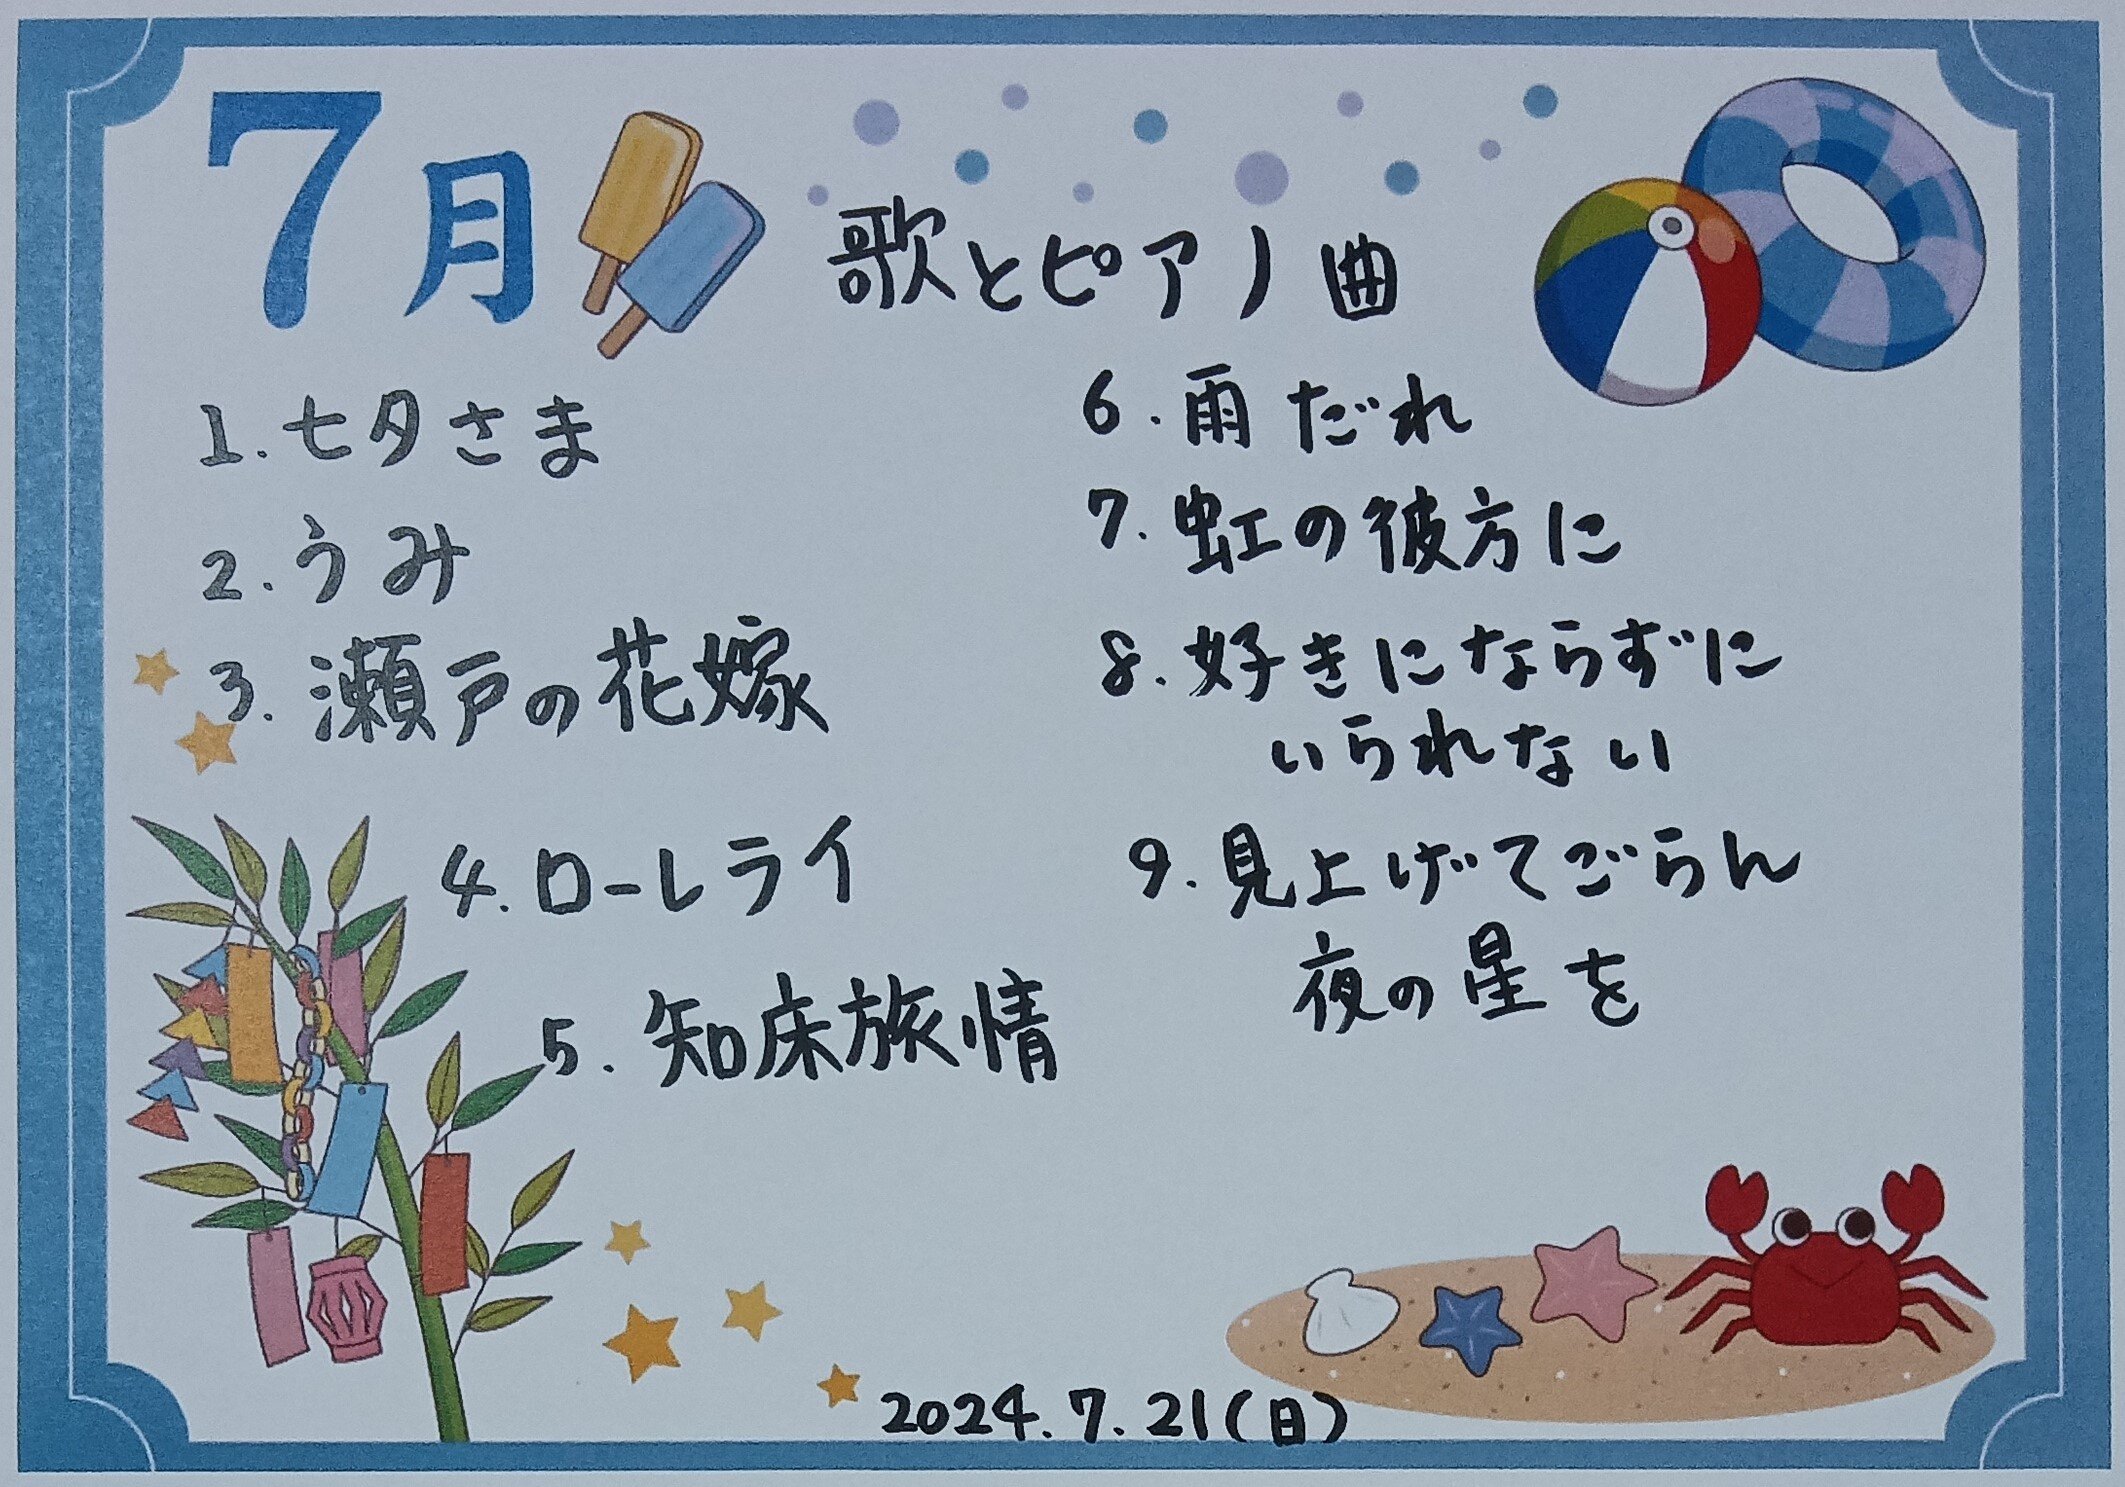 7月
歌とピアノ曲
1.七夕さま
2.うみ
3.瀬戸の花嫁
4.ローレライ
5.知床旅情
6.雨だれ
7.虹の彼方に
8.好きにならずに
いられない
9.見上げてごらん
夜の星を
2024.7.21(日)